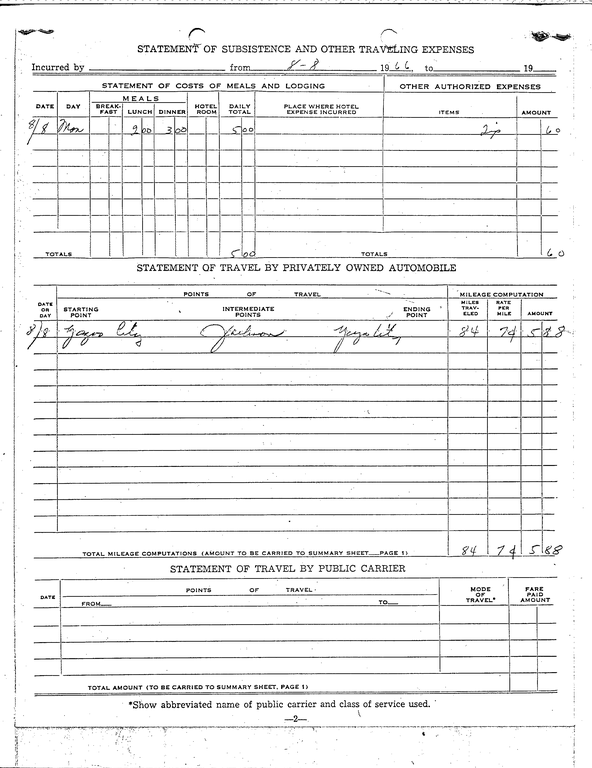 STATEMENT OF SUBSISTENCE AND OTHER TRAVELING EXPENSES
Incurred by from 8-8 1966 to 19
STATEMENT OF COSTS OF MEALS AND LODGING OTHER AUTHORIZED EXPENSES
DATE DAY MEALS BREAK-FAST LUNCH DINNER HOTEL ROOM DAILY TOTAL PLACE WHERE HOTEL EXPENSE INCURRED ITEMS AMOUNT
8/8 Mon 2 00 3 00 5 00 Tip 60
TOTALS 5 00 TOTALS 60
STATEMENT OF TRAVEL BY PRIVATELY OWNED AUTOMOBILE
POINTS OF TRAVEL MILEAGE COMPUTATION
DATE OR DAY STARTING POINT INTERMEDIATE POINTS ENDING POINT MILES TRAV-ELED RATE PER MILE AMOUNT
8/8 Yazoo City Jackson Yazoo City 84 7¢ 5 88
TOTAL MILEAGE COMPUTATIONS (AMOUNT TO BE CARRIED TO SUMMARY SHEET PAGE 1) 84 7¢ 5 88
STATEMENT OF TRAVEL BY PUBLIC CARRIER
DATE POINTS OF TRAVEL MODE OF TRAVEL* FARE PAID AMOUNT
FROM TO
TOTAL AMOUNT (TO BE CARRIED TO SUMMARY SHEET, PAGE 1)
*Show abbreviated name of public carrier and class of service used.
—2—